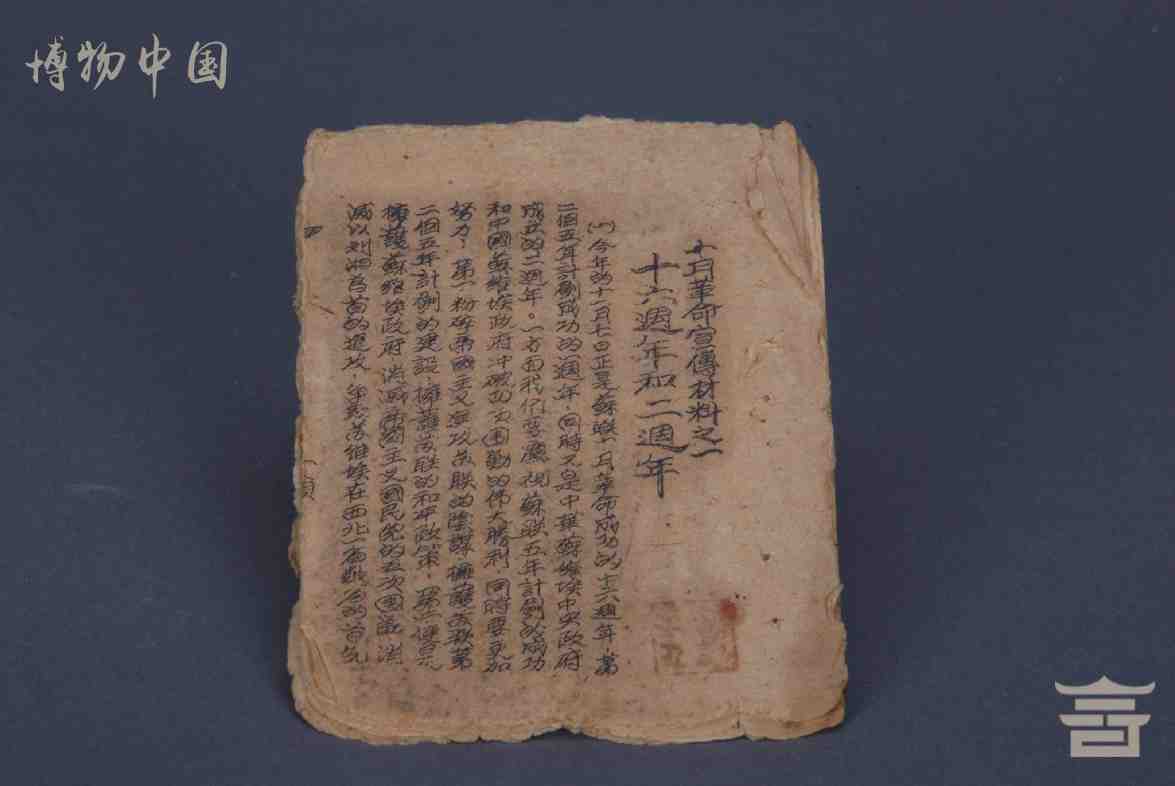 博物中国
十月革命宣傳材料之一
十六週年和二週年
(一)今年的十一月七日正是蘇联十月革命成功的十六週年,第
二個五年計劃成功的週年,同時又是中華蘇維埃中央政府
成立的二週年。一方面我们要慶祝蘇联五年計劃的成功
和中國蘇維埃政府冲破四次圍勦的伟大勝利,同時要更加
努力:第一粉碎帝國主义進攻苏联的陰謀,擁護苏联第
二個五年計劃的建設,擁護苏联的和平政策,
擁護蘇維埃政府,消滅帝國主义國民党的五次圍勦,消
滅 的進攻, 苏維埃在西北
一頁